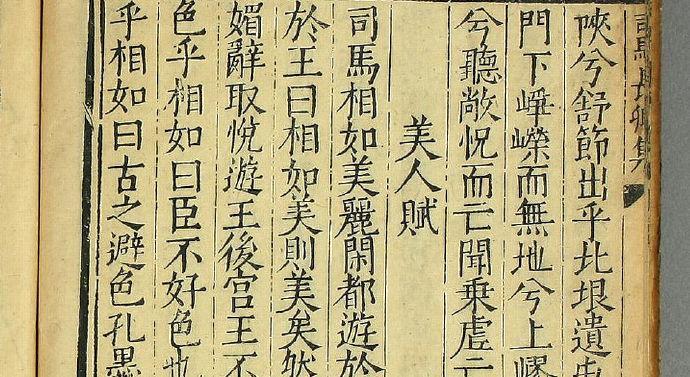 司馬長卿集
陜兮舒節出乎北垠遺
門下崢嶸而無地兮上嵺
兮聽敞怳而亡聞乘虛亡
美人賦
司馬相如美麗閑都遊於
於王曰相如美則美矣然
媚辭取悅遊王後宫王不
色乎相如曰臣不好色也
乎相如曰古之避色孔墨